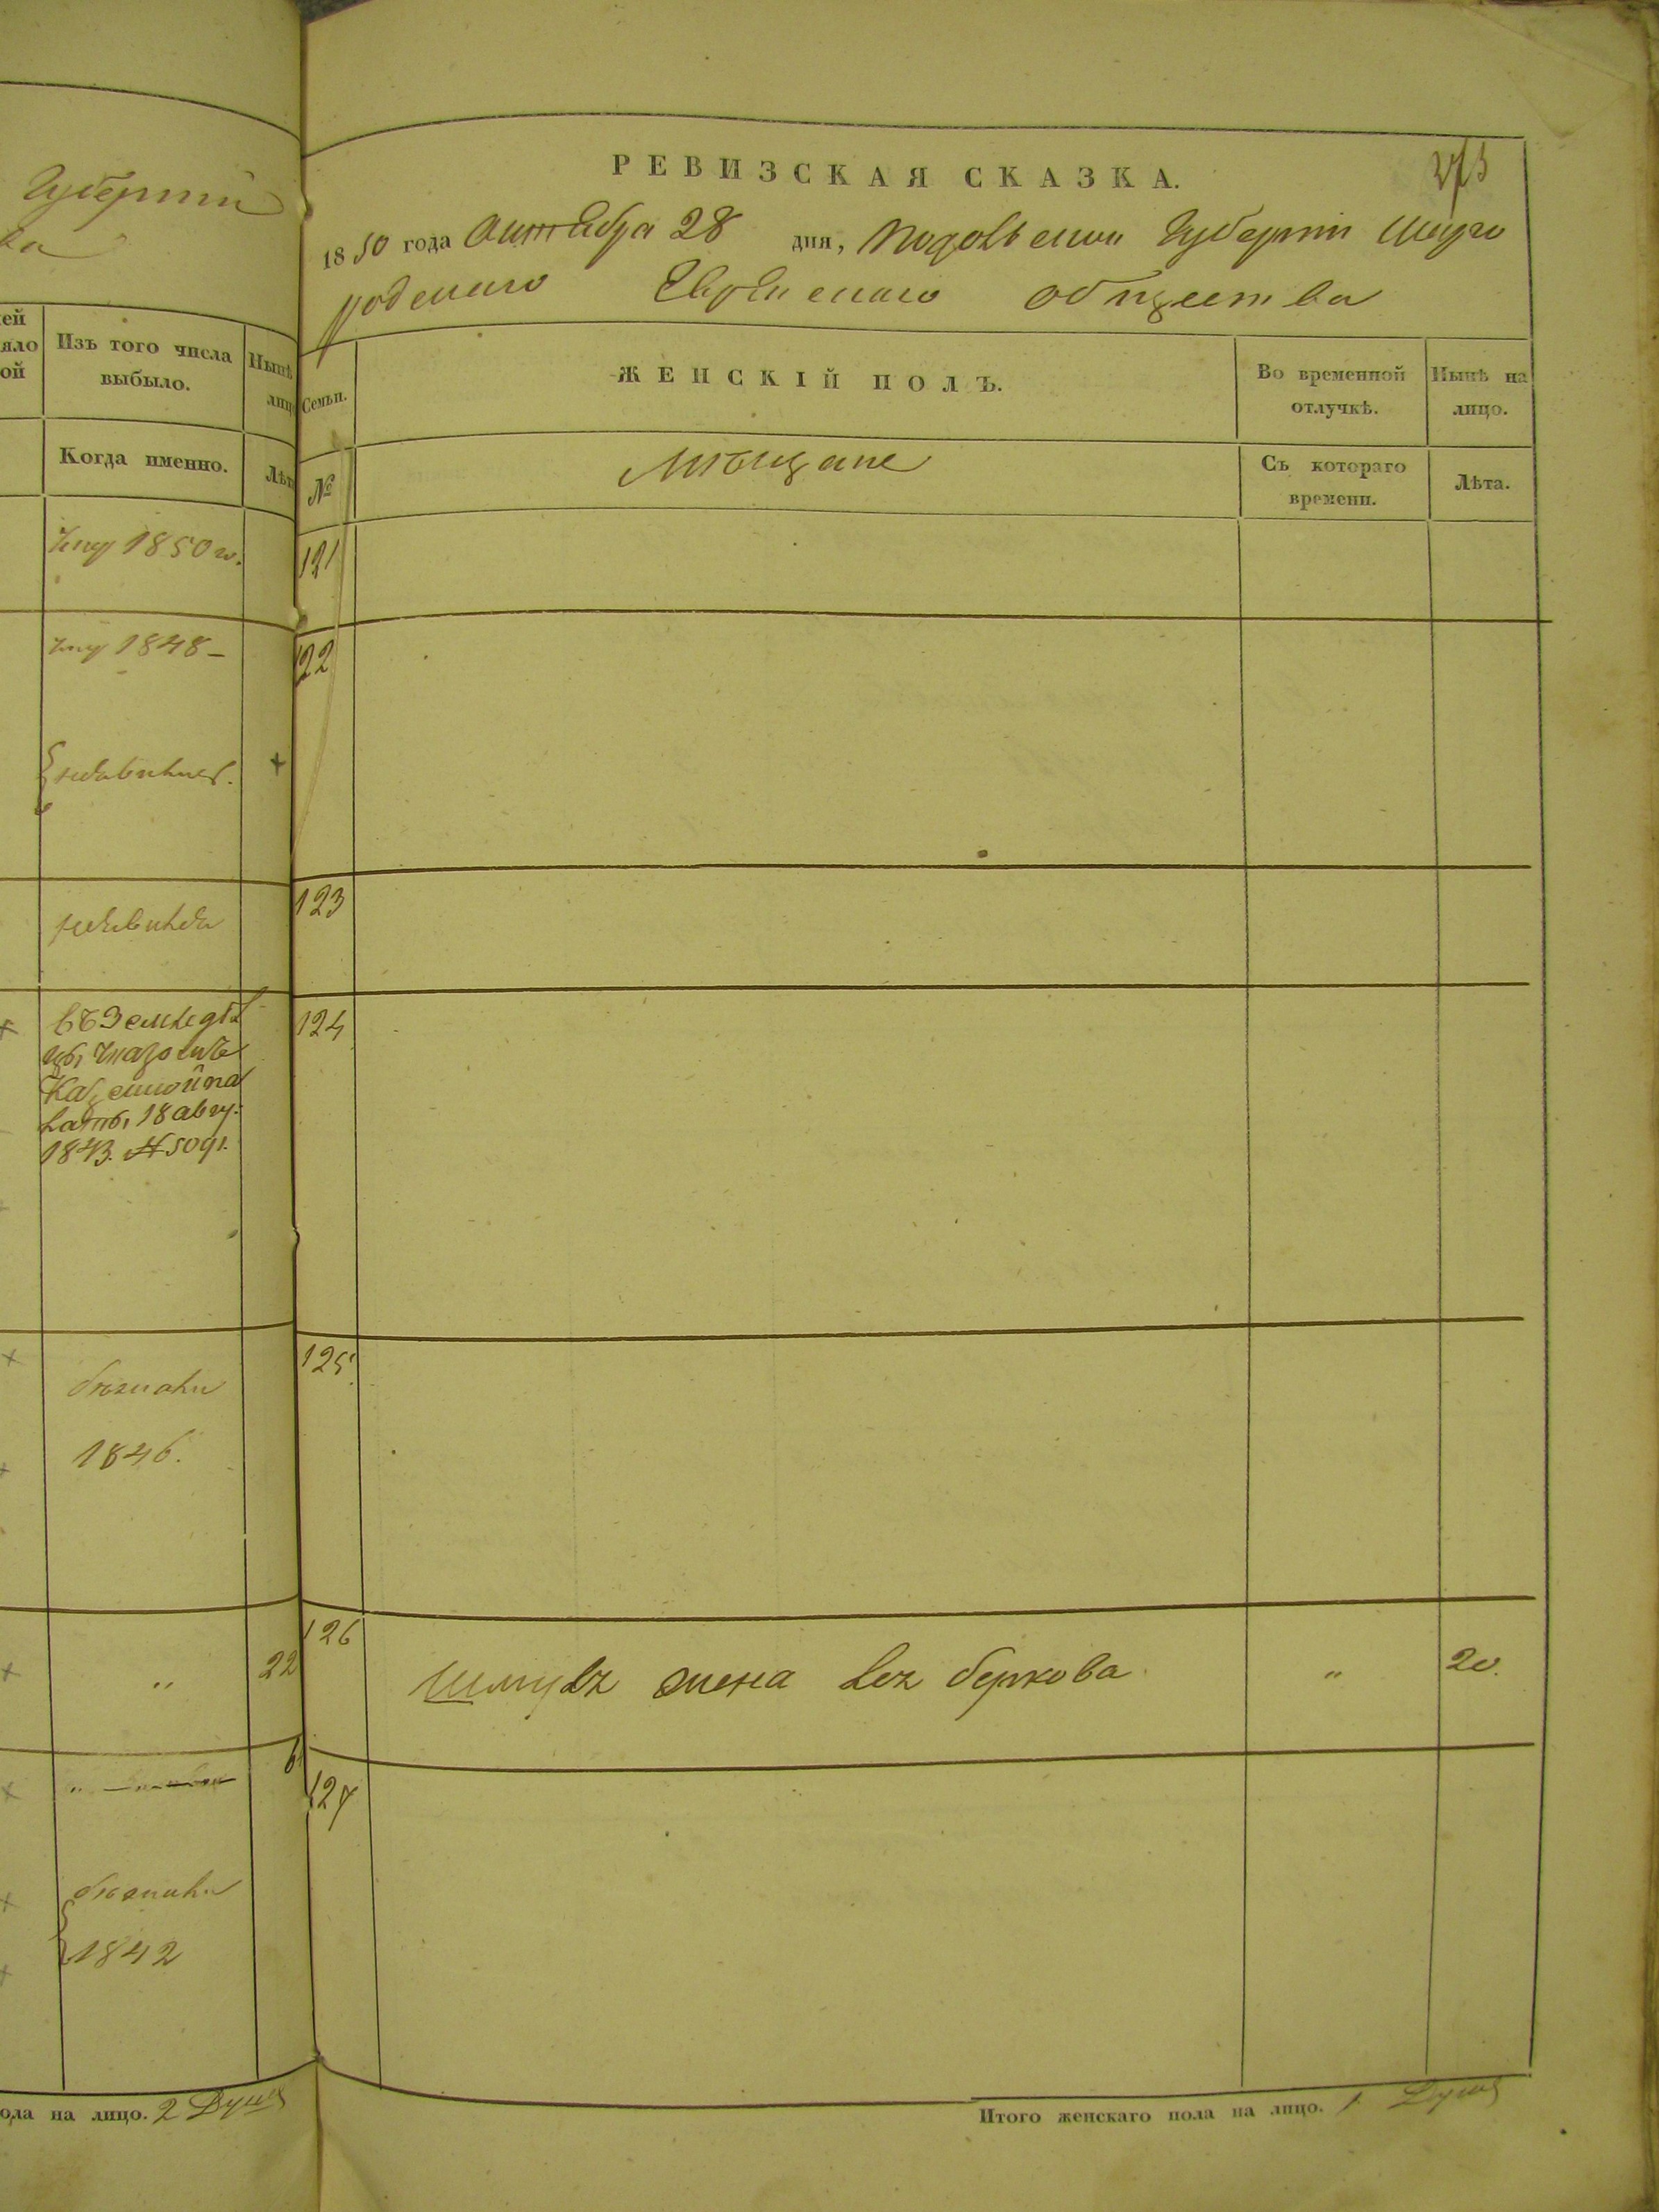 Губерніи
ва
ей
яло
ой
Изъ того числа
выбыло.
Нынѣ
лиц
Когда именно.
Лѣт
1850 го.
1848 –
въ Земледѣл
цы, указомъ
Казенной па
латы, 18 авгу.
1843. № 5091.
1846.
„ 22
6
„
1842
ола на лицо. 2 Души
РЕВИЗСКАЯ СКАЗКА.
273
1850 года Октября 28 дня, Подольской Губерніи Шаро
родскаго Еврейскаго общества
Семьи.
ЖЕНСКІЙ ПОЛЪ.
Во временной
отлучкѣ.
Нынѣ на
лицо.
№
Мѣщане
Съ котораго
времени.
Лѣта.
121
122
123
124
125.
126
жена беркова „ 20.
127
Итого женскаго пола на лицо. 1. Душа